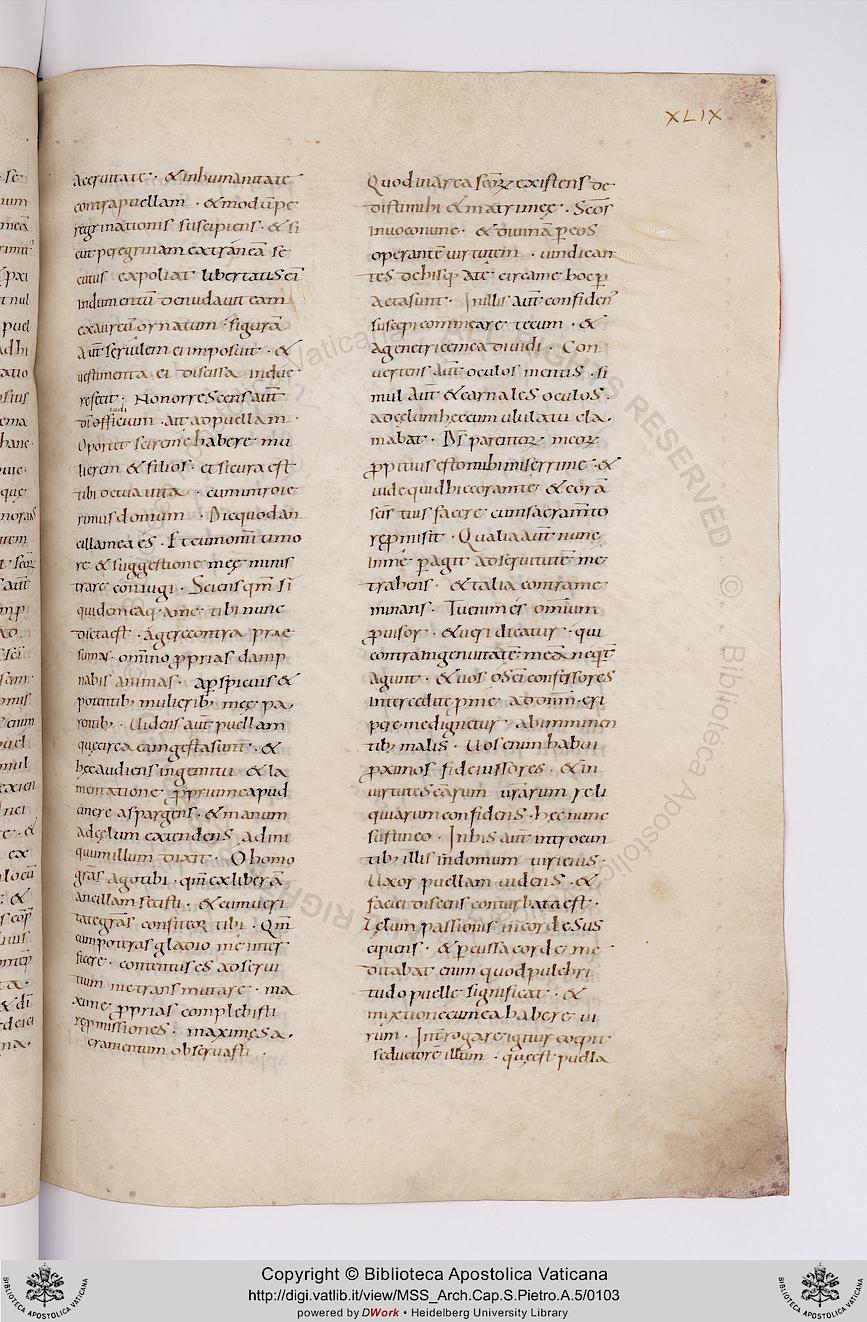 XLIX
acerbitate · & inhumanitate
contra puellam · & modū pe
regrinationis suscipiens · & si
cut peregrinam extraneā se
cutus expoliat libertatis ei
indumentū denudavit eam
ex aureū ornatum · figurā
aūt servilem ei imposuit · &
vestimenta ei discissa indue
re fecit · Non orrescens aūt
iudi
dī officium · ait ad puellam ·
Oportet scire me habere mu
lierem & filios · et si cura est
tibi de tua vita · cum introie
rimus domum · Dic quod an
cilla mea es · Et cum omī timo
re & suggestione meę minis
trare coniugi · Sciens qm̄ si
quidem ea q· a me tibi nunc
dicta est · agere contra prae
sumas · omnino p̄prias damp
nabis animas ·
potentib; mulierib; meę pa,
rentib; · Videns aūt puellam
quę circa eam gesta sunt · &
hęc audiens ingemitu & la
mentatione p̄prium caput
cinere aspargens · & manum
ad cęlum extendens ad ini
quum illum dixit · O homo
grās ago tibi · qm̄ ex liberā
ancillam fecisti · & cum veri
tate grās confiteor tibi · Qm̄
cum poteras gladio me inter
ficere · contentus es ad servi
tium me transmutare · ma
xime p̄prias complebisti
rep̄missiones · maxime sa,
cramentum observasti ·
Quod in arca scōꝝ existens de
disti mihi & matri meę · Scōs
invoco nunc · & divinā p̄ eos
operantē virtutem · vindican
tes de his q; a te circa me hoc p̄
acta sunt · In illis aūt confidens
suscepi commeare tecum · &
a genetrice mea dividi · Con
vertens aūt oculos mentis · si
mul aūt & carnales oculos ·
ad cęlum hęc cum ululatu cla,
mabat · Dš parentoꝝ meoꝝ
p̄pitius esto mihi miserrime · &
vide quid hic coram te & corā
scīs tuis facere cum sacramto
rep̄misit · Qualia aūt nunc
in me p̄agit ad servitutē me
trahens · & talia contra me
minans · Tu enim es omium
p̄visor · & veri dicatur · qui
contra ingenuitatē meā nequit̄
agunt · & vos o scī confessores
intercedite p̄ me ad dom̄ · eri
pere me dignetur ab imminen
tib; malis · Vos enim habui
p̄ximos fideiussores · & in
virtutes earum vr̄arum reli
quiarum confidens · hęc nunc
sustineo · In his aūt introeun
tib; illis in domum viri eius ·
Uxor puellam videns · &
faciei discens conturbata est ·
Zelum passionis in corde sus
cipiens · & p̄cussa corde me
ditabat enim quod pulchri
tudo puelle significat · &
mixtione cum ea habere vi
rum · Interrogare igitur coepit
seductorē illum · quę est puella
Copyright © Biblioteca Apostolica Vaticana
http://digi.vatlib.it/view/MSS_Arch.Cap.S.Pietro.A.5/0103
powered by DWork • Heidelberg University Library